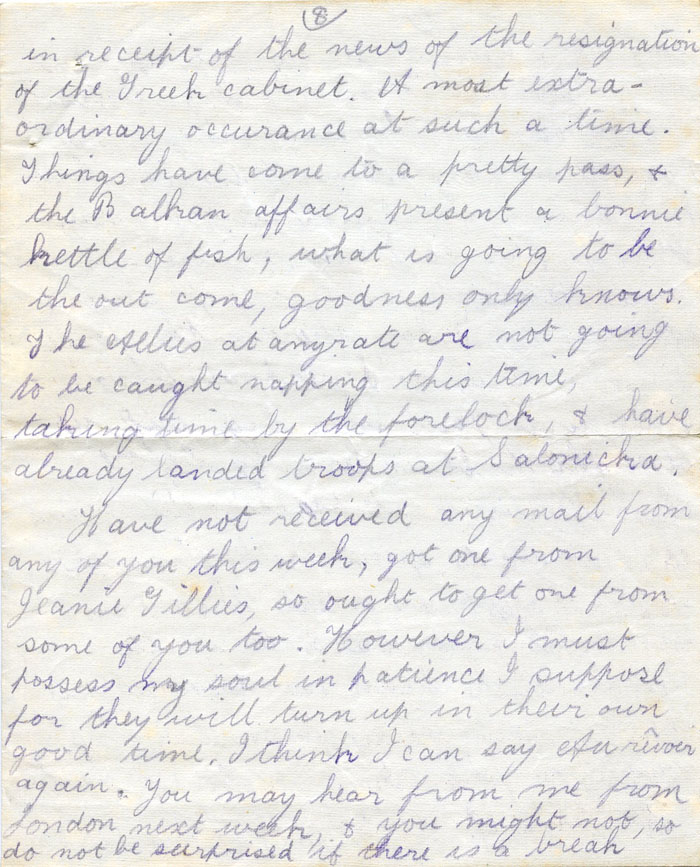 8
in receipt of the news of the resignation
of the Greek cabinet. A most extra-
ordinary occurance at such a time.
Things have come to a pretty pass, &
the Balkan affairs present a bonnie
kettle of fish, what is going to be
the out come, goodness only knows.
The Allies at anyrate are not going
to be caught napping this time,
taking time by the forelock, & have
already landed troops at Salonicka.
Have not received any mail from
any of you this week, got one from
Jeanie Gillies, so ought to get one from
some of you too. However I must
possess my soul in patience I suppose
for they will turn up in their own
good time. I think I can say Au rêvoir
again. You may hear from me from
London next week, & you might not, so
do not be surprised if there is a break